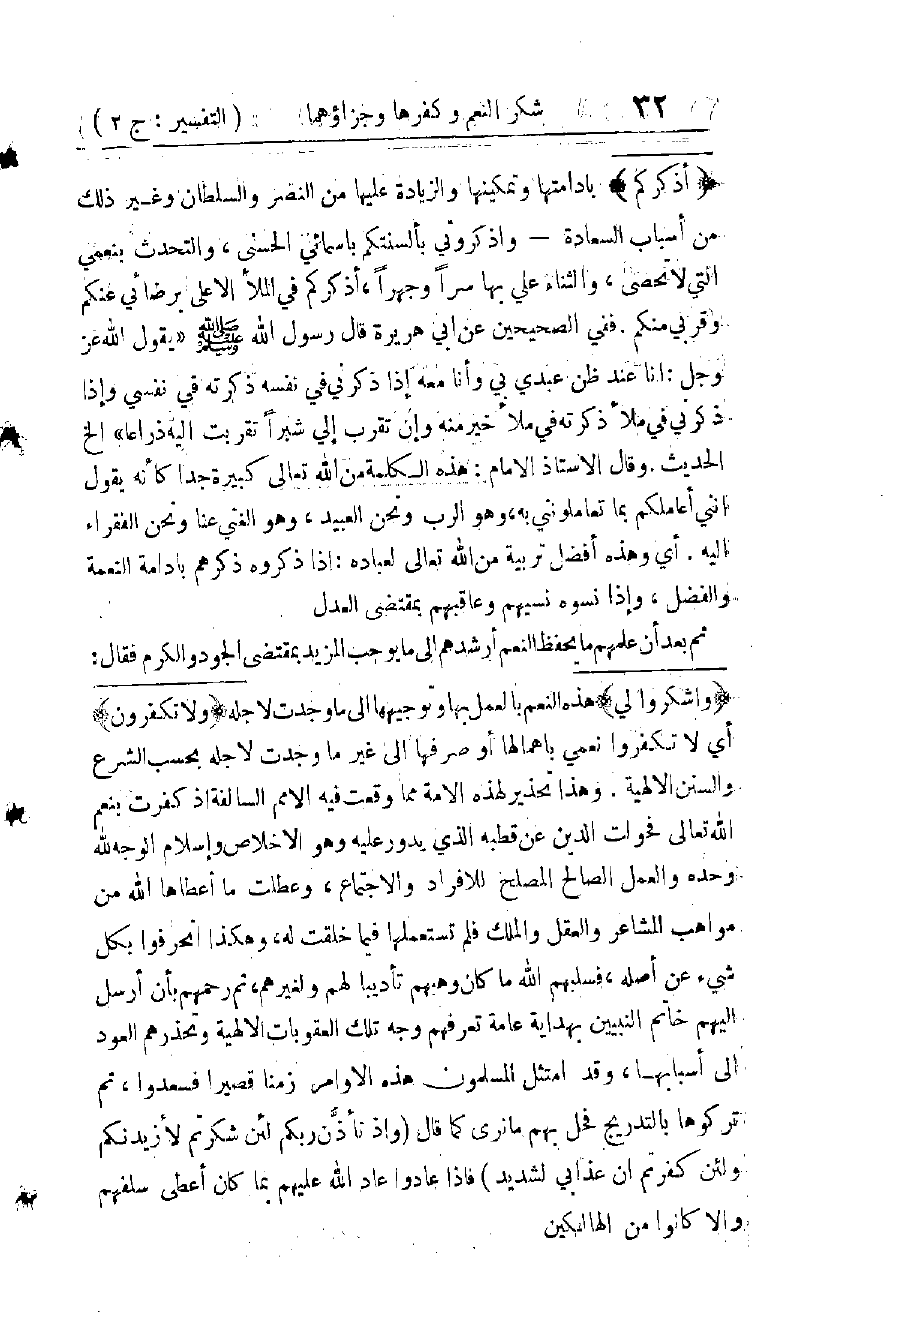 ٣٢ شكر النعم وكفرها وجزاؤهما (التفسير: ج ٢)
﴿أذكركم﴾ بادامتها وتمكينها والزيادة عليها من النصر والسلطان وغير ذلك
من أسباب السعادة — واذكروني بألسنتكم باسمائي الحسنى، والتحدث بنعمي
التي لا تحصى، والثناء علي بها سراً وجهراً، أذكركم في الملأ الاعلى برضائي عنكم
وقربي منكم. ففي الصحيحين عن ابي هريرة قال رسول الله ﷺ «يقول الله عز
وجل: انا عند ظن عبدي بي وأنا معه إذا ذكرني في نفسه ذكرته في نفسي وإذا
ذكرني في ملأ ذكرته في ملأ خير منه وإن تقرب إلي شبراً تقربت اليه ذراعا» الخ
الحديث. وقال الاستاذ الامام: هذه الكلمة من الله تعالى كبيرة جدا كأنه يقول
انني أعاملكم بما تعاملونني به، وهو الرب ونحن العبيد، وهو الغني عنا ونحن الفقراء
اليه. أي وهذه أفضل تربية من الله تعالى لعباده: اذا ذكروه ذكرهم بادامة النعمة
والفضل، وإذا نسوه نسيهم وعاقبهم بمقتضى العدل
ثم بعد أن علمهم ما يحفظ النعم أرشدهم الى ما يوجب المزيد بمقتضى الجود والكرم فقال:
﴿واشكروا لي﴾ هذه النعم بالعمل بها وتوجيهها الى ما وجدت لاجله ﴿ولا تكفرون﴾
أي لا تكفروا نعمي باهمالها أو صرفها الى غير ما وجدت لاجله بحسب الشرع
والسنن الالهية. وهذا تحذير لهذه الامة مما وقعت فيه الامم السالفة اذ كفرت بنعم
الله تعالى فحولت الدين عن قطبه الذي يدور عليه وهو الاخلاص وإسلام الوجه لله
وحده والعمل الصالح المصلح للافراد والاجتماع، وعطلت ما أعطاها الله من
مواهب المشاعر والعقل والملك فلم تستعملها فيما خلقت له، وهكذا انحرفوا بكل
شيء عن أصله، فسلبهم الله ما كان وهبهم تأديبا لهم ولغيرهم، ثم رحمهم بأن أرسل
اليهم خاتم النبيين بهداية عامة تعرفهم وجه تلك العقوبات الالهية وتحذرهم العود
الى أسبابها، وقد امتثل المسلمون هذه الاوامر زمنا قصيرا فسعدوا، ثم
تركوها بالتدريج فحل بهم ما نرى كما قال (واذ تأذَّن ربكم لئن شكرتم لأزيدنكم
ولئن كفرتم ان عذابي لشديد) فاذا عادوا عاد الله عليهم بما كان أعطى سلفهم
والا كانوا من الهالكين